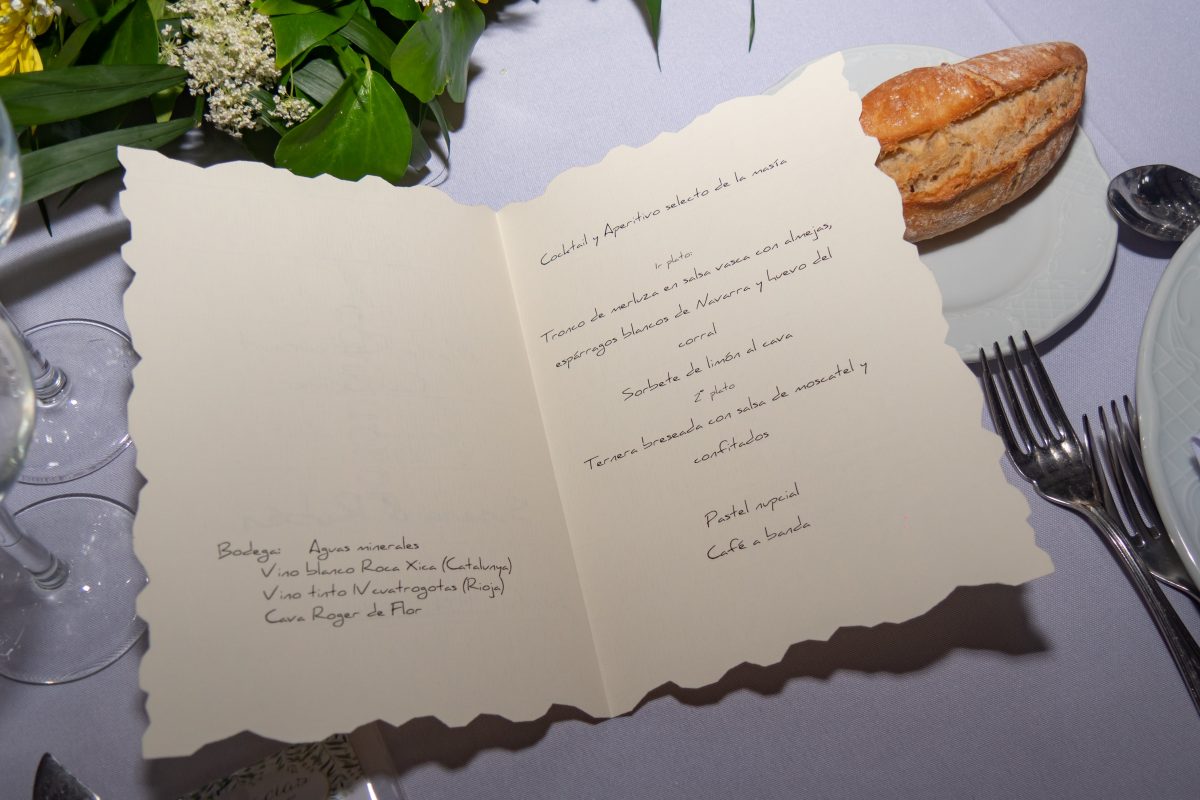 Bodega: Aguas minerales
Vino blanco Roca Xica (Catalunya)
Vino tinto IV cuatrogotas (Rioja)
Cava Roger de Flor
Cocktail y Aperitivo selecto de la masía
1r plato:
Tronco de merluza en salsa vasca con almejas,
espárragos blancos de Navarra y huevo del
corral
Sorbete de limón al cava
2º plato
Ternera breseada con salsa de moscatel y
confitados
Pastel nupcial
Café a banda